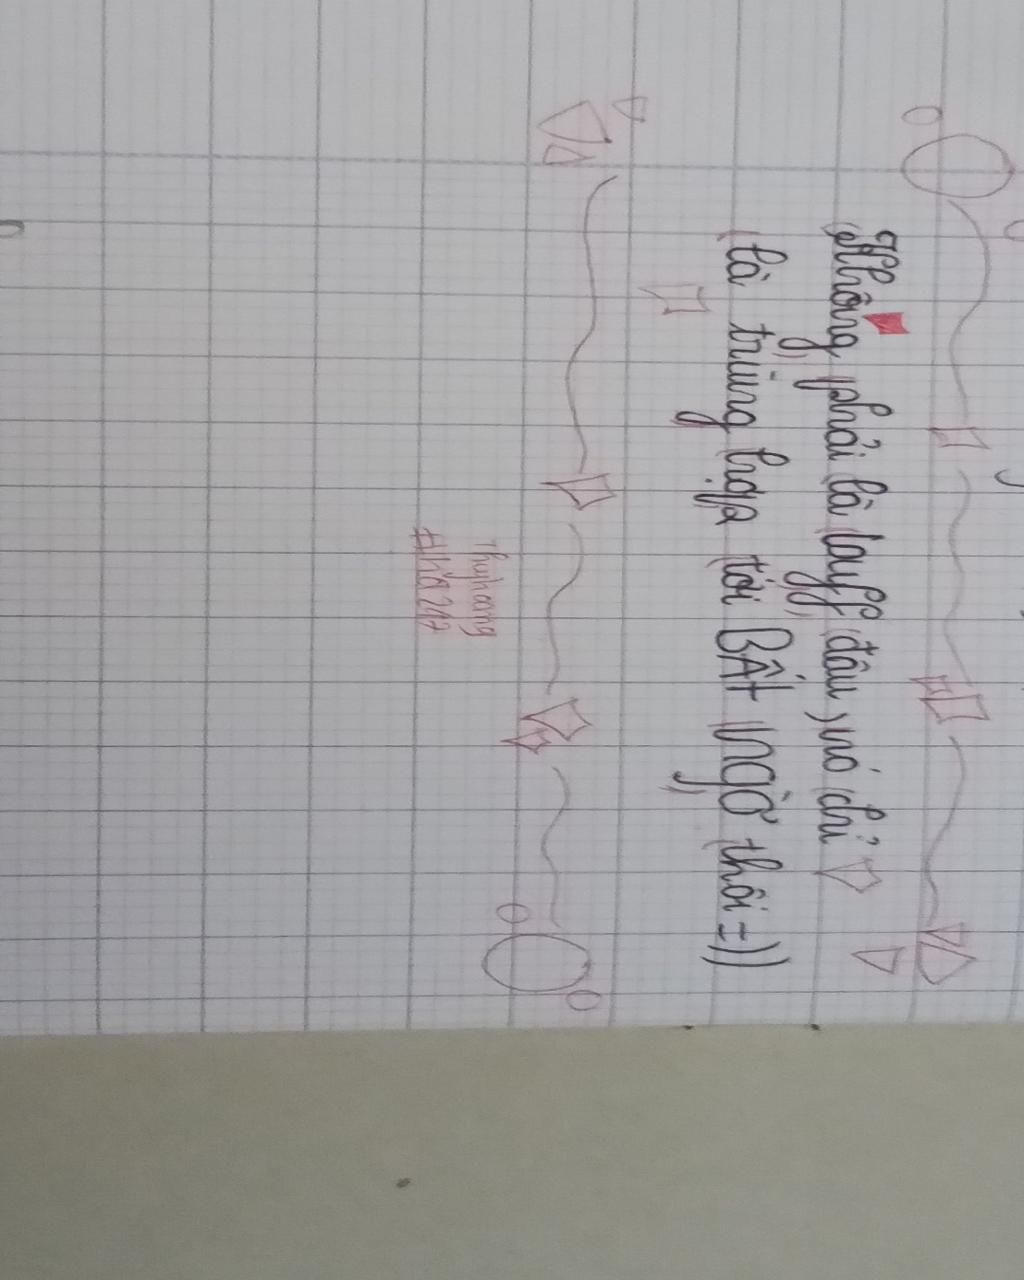 Không phải là layff đâu, nó chỉ
là trùng hợp tới BẤT NGỜ thôi =))
Thuyhoang